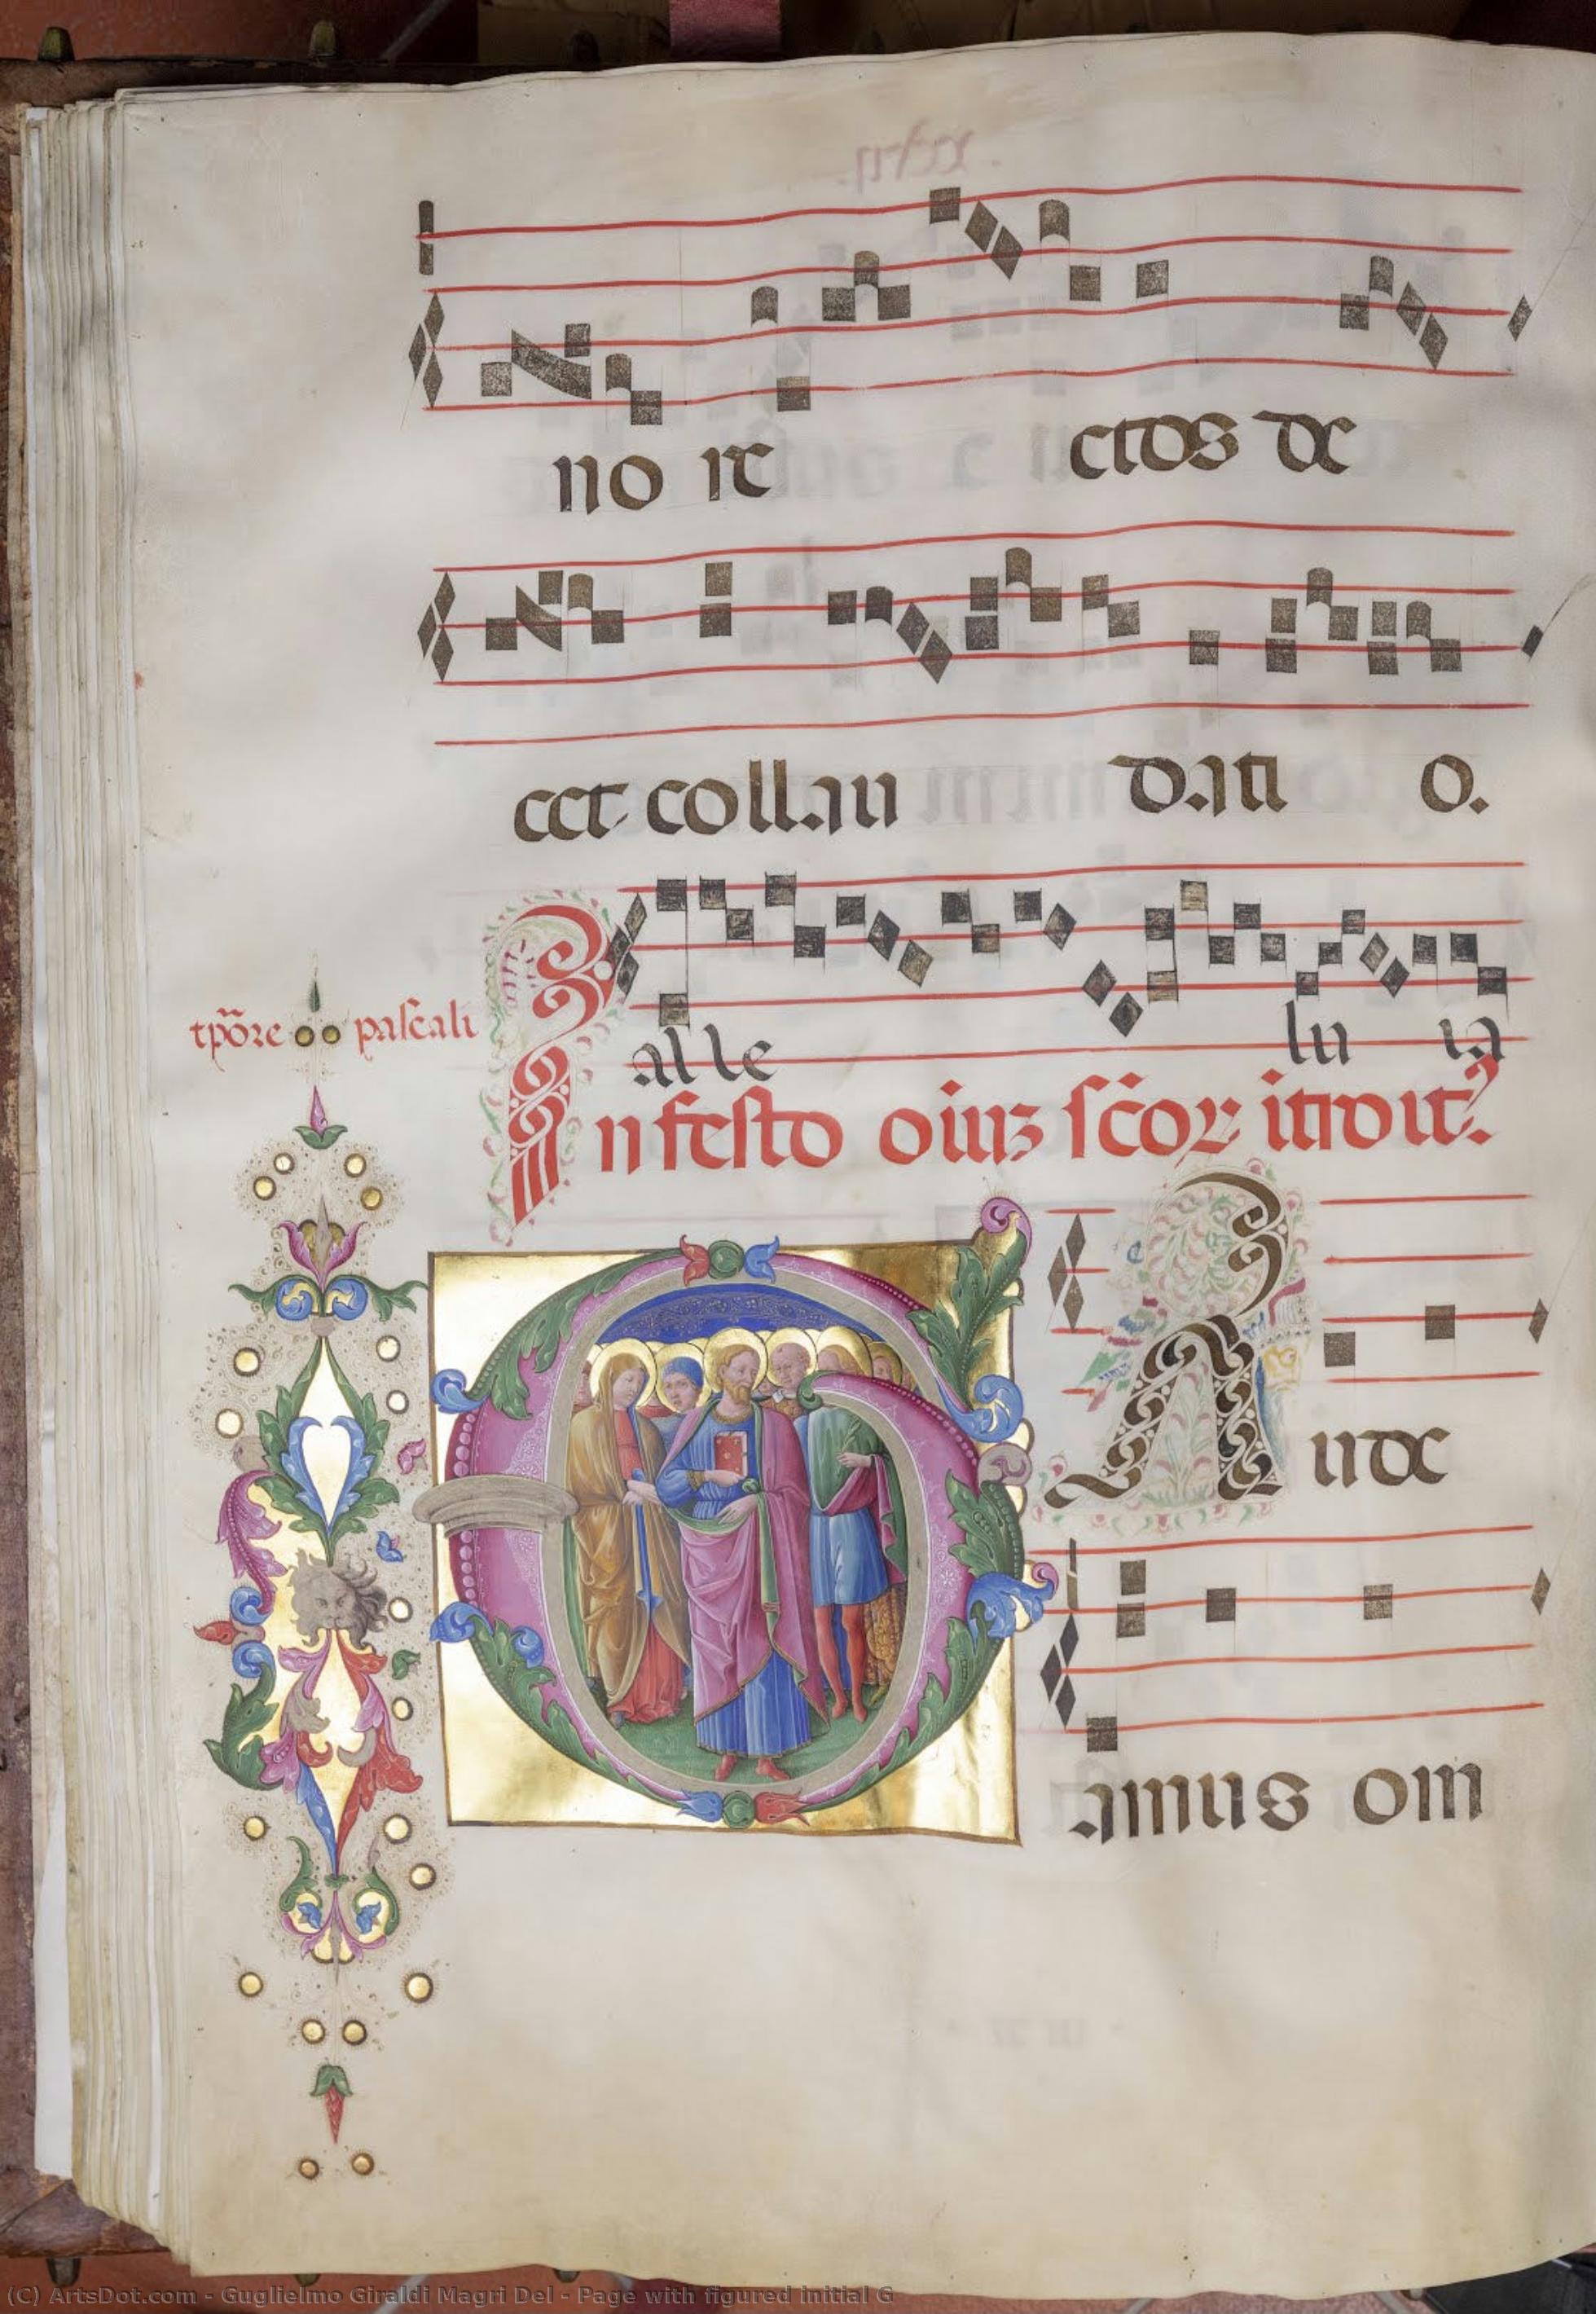 no re ctos de
cet collau dati o.
tp̄ore pascali
alle lu ia
In festo oīuꝫ sc̄oꝝ ītroit9.
G Aude
amus om
(C) ArtsDot.com - Guglielmo Giraldi Magri Del - Page with figured initial G